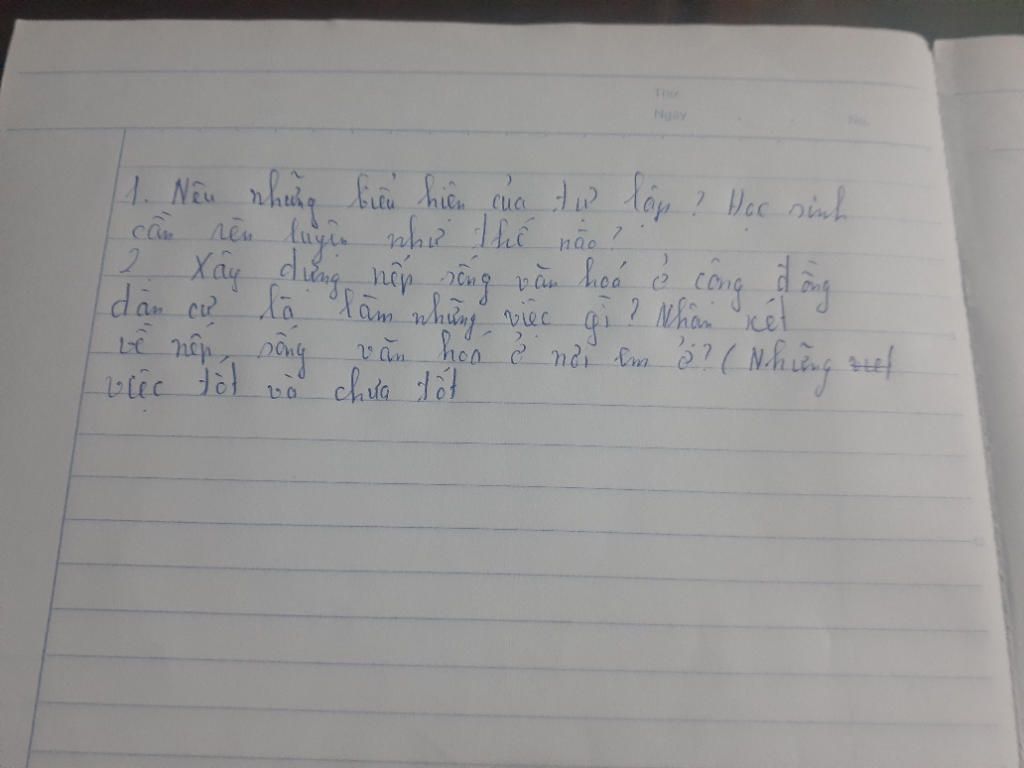 Thứ
Ngày No.
1. Nêu những biểu hiện của tự lập? Học sinh
cần rèn luyện như thế nào?
2. Xây dựng nếp sống văn hoá ở cộng đồng
dân cư là làm những việc gì? Nhận xét
về nếp sống văn hoá ở nơi em ở? (Những
việc tốt và chưa tốt